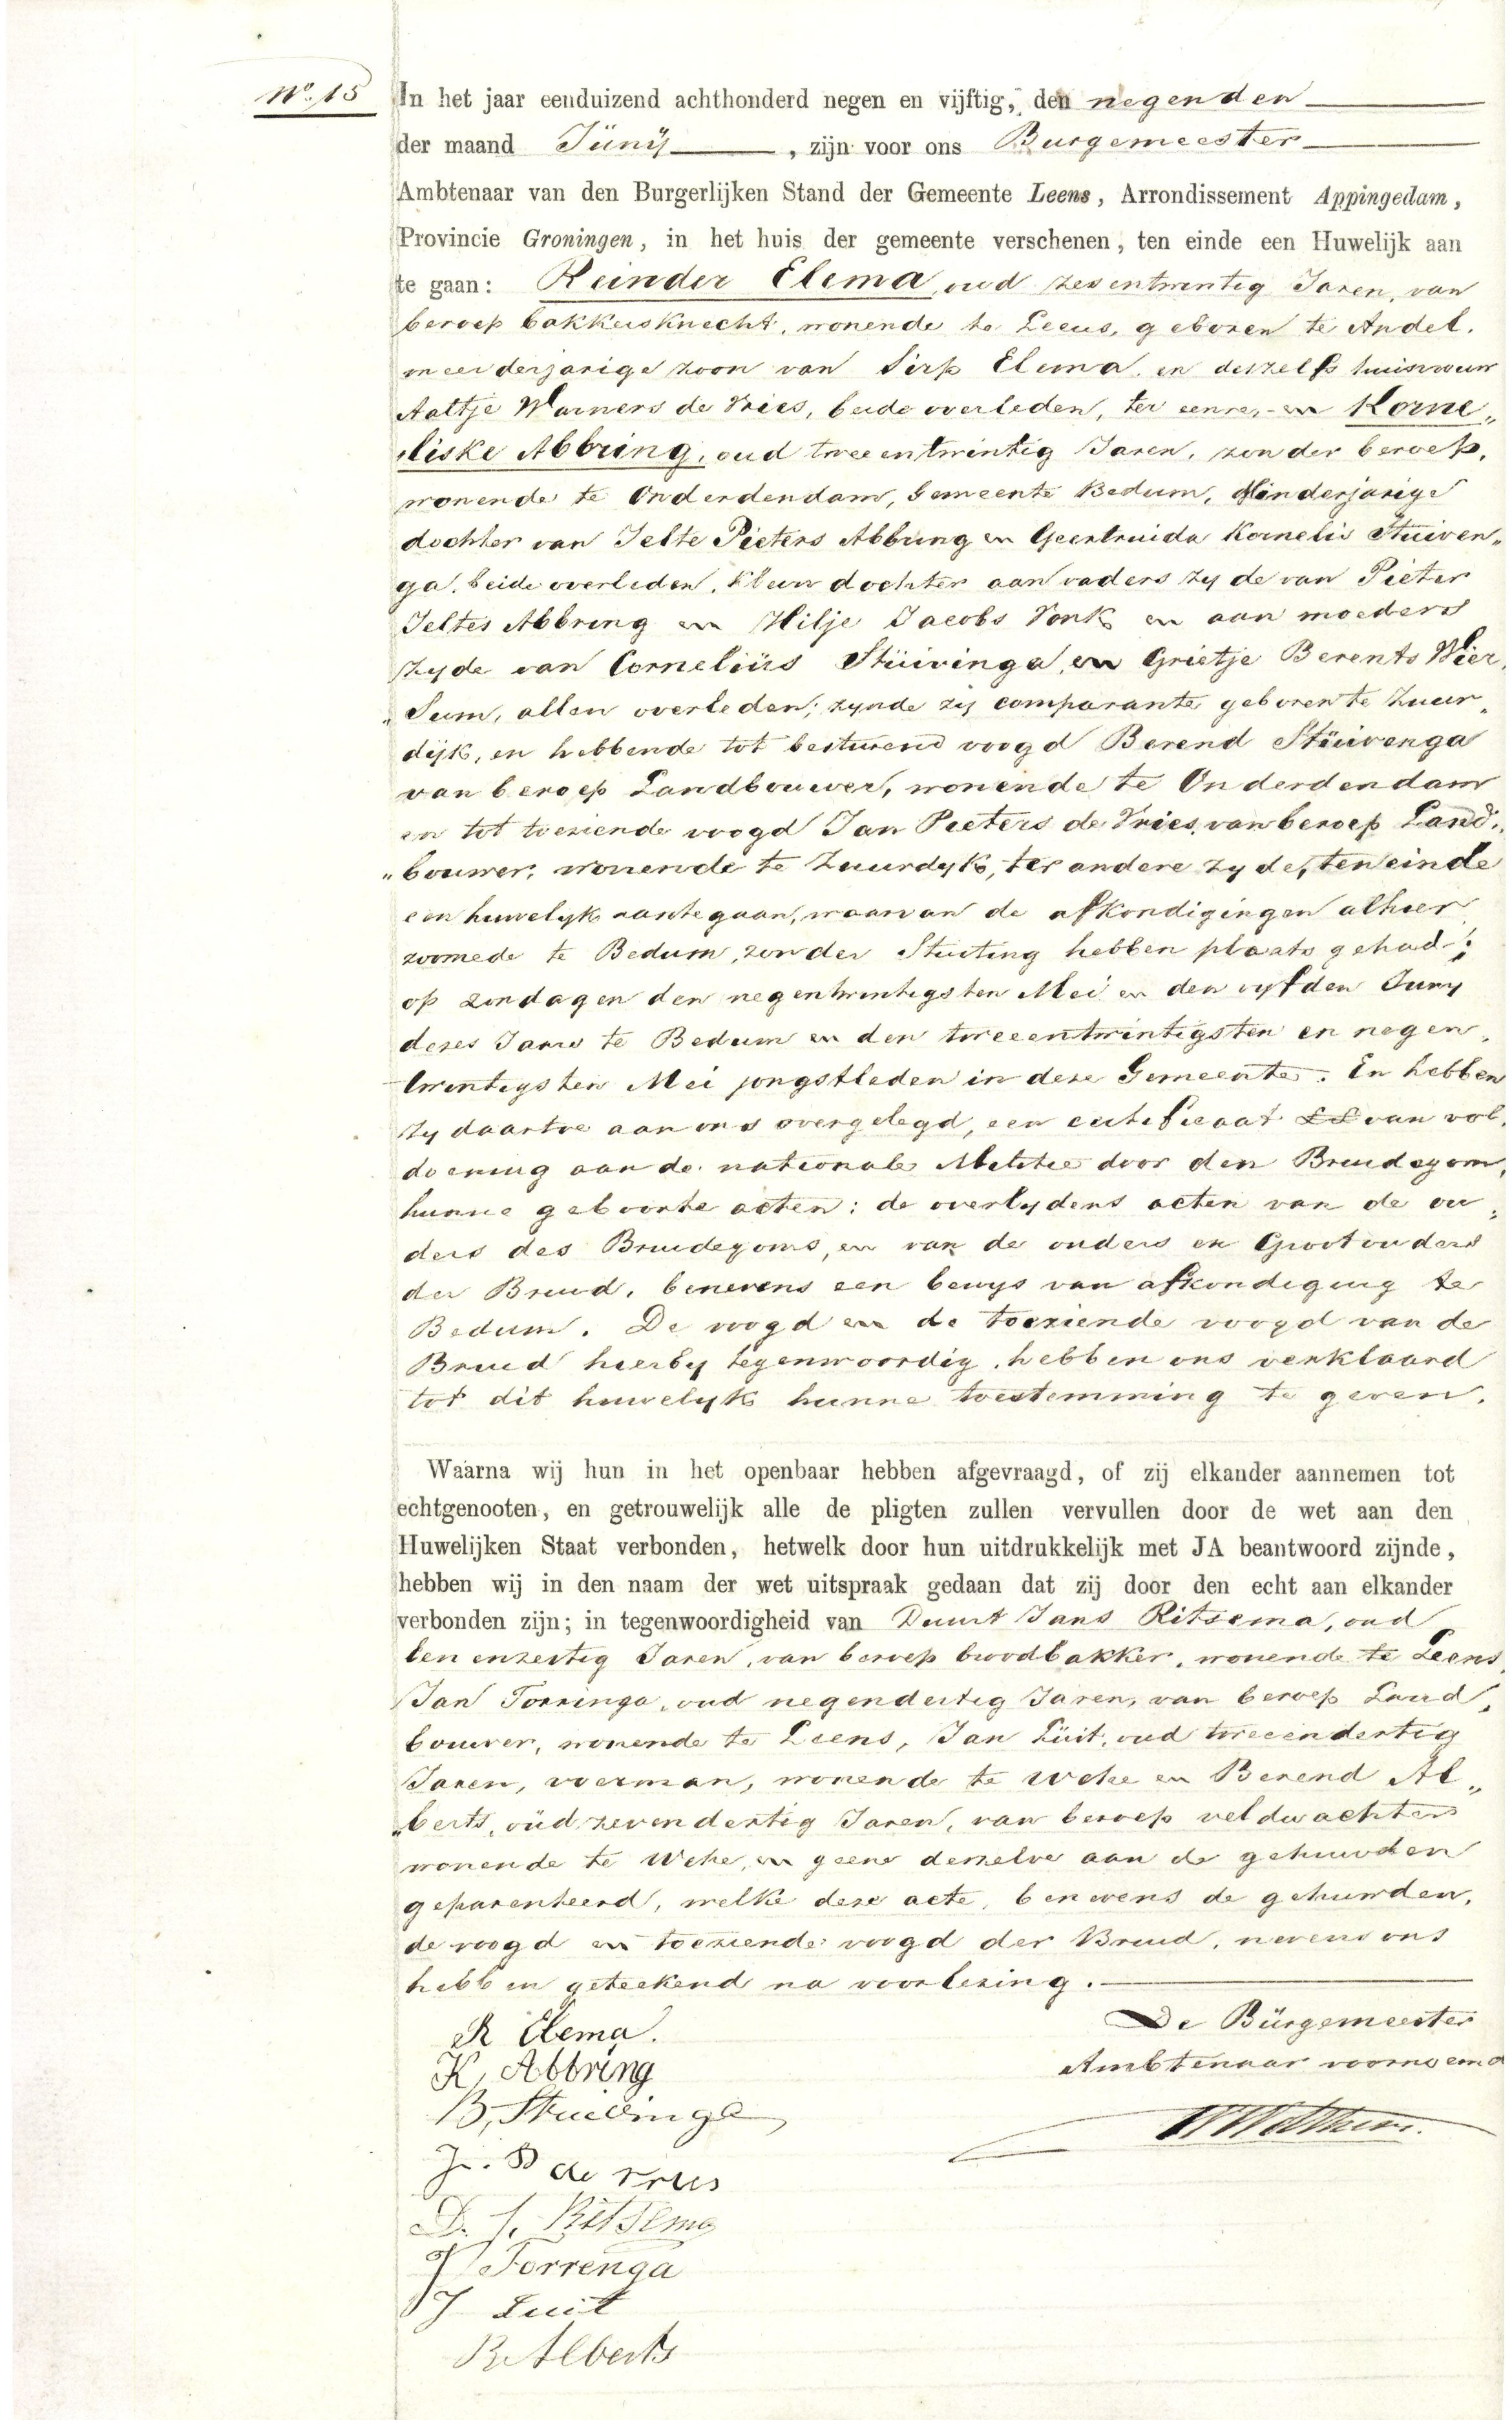 No. 15
In het jaar eenduizend achthonderd negen en vijftig, den negenden
der maand Junij, zijn voor ons Burgemeester
Ambtenaar van den Burgerlijken Stand der Gemeente Leens, Arrondissement Appingedam,
Provincie Groningen, in het huis der gemeente verschenen, ten einde een Huwelijk aan
te gaan: Reinder Elema, oud zesentwintig Jaren, van
beroep bakkersknecht, wonende te Leens, geboren te Andel,
meerderjarige zoon van Sirp Elema en deszelfs huisvrouw
Aaltje Warners de Vries, beide overleden, ter eenre, en Korne„
„liske Abbring, oud tweeentwintig Jaren, zonder beroep,
wonende te Onderdendam, Gemeente Bedum, Minderjarige
dochter van Jelte Pieters Abbring en Geertruida Kornelis Stuiven„
ga, beide overleden, kleindochter aan vaders zyde van Pieter
Jeltes Abbring en Hilje Jacobs Vonk en aan moeders
zyde van Cornelius Stuivinga en Grietje Berents Wier„
„Sum, allen overleden; zynde zij comparante geboren te Zuur„
dijk, en hebbende tot besturend voogd Berend Stuivenga
van beroep Landbouwer, wonende te Onderdendam
en tot toeziende voogd Jan Pieters de Vries, van beroep Land„
„bouwer, wonende te Zuurdyk, ter andere zyde, ten einde
een huwelyk aantegaan, waarvan de afkondigingen alhier
zoomede te Bedum, zonder Stuiting hebben plaats gehad;
op zondagen den negentwintigsten Mei en den vyfden Juny
dezes Jaars te Bedum en den tweeentwintigsten en negen„
twintigsten Mei jongstleden in deze Gemeente. En hebben
zy daartoe aan ons overgelegd, een certificaat van vol„
doening aan de nationale Militie door den Bruidegom,
hunne geboorte acten; de overlydens acten van de ou„
ders des Bruidegoms, en van de ouders en Grootouders
der Bruid, benevens een bewys van afkondiging te
Bedum. De voogd en de toeziende voogd van de
Bruid hierby tegenwoordig, hebben ons verklaard
tot dit huwelyk hunne toestemming te geven.
Waarna wij hun in het openbaar hebben afgevraagd, of zij elkander aannemen tot
echtgenooten, en getrouwelijk alle de pligten zullen vervullen door de wet aan den
Huwelijken Staat verbonden, hetwelk door hun uitdrukkelijk met JA beantwoord zijnde,
hebben wij in den naam der wet uitspraak gedaan dat zij door den echt aan elkander
verbonden zijn; in tegenwoordigheid van Duurt Jans Ritsema, oud
een enzestig Jaren, van beroep broodbakker, wonende te Leens,
Jan Torringa, oud negendertig Jaren, van beroep Land„
bouwer, wonende te Leens, Jan Luit, oud tweeendertig
Jaren, voerman, wonende te Wehe en Berend Al„
„berts, oud zevendertig Jaren, van beroep veldwachter
wonende te Wehe, en geene derzelve aan de gehuwden
geparenteerd, welke deze acte, benevens de gehuwden,
de voogd en toeziende voogd der Bruid, nevens ons
hebben geteekend na voorlezing.
De Burgemeester
Ambtenaar voornoemd
R Elema.
K, Abbring
B, Stuivinga
J. P de Vries
D. J. Ritsema
J Torrenga
J Luit
B. Alberts